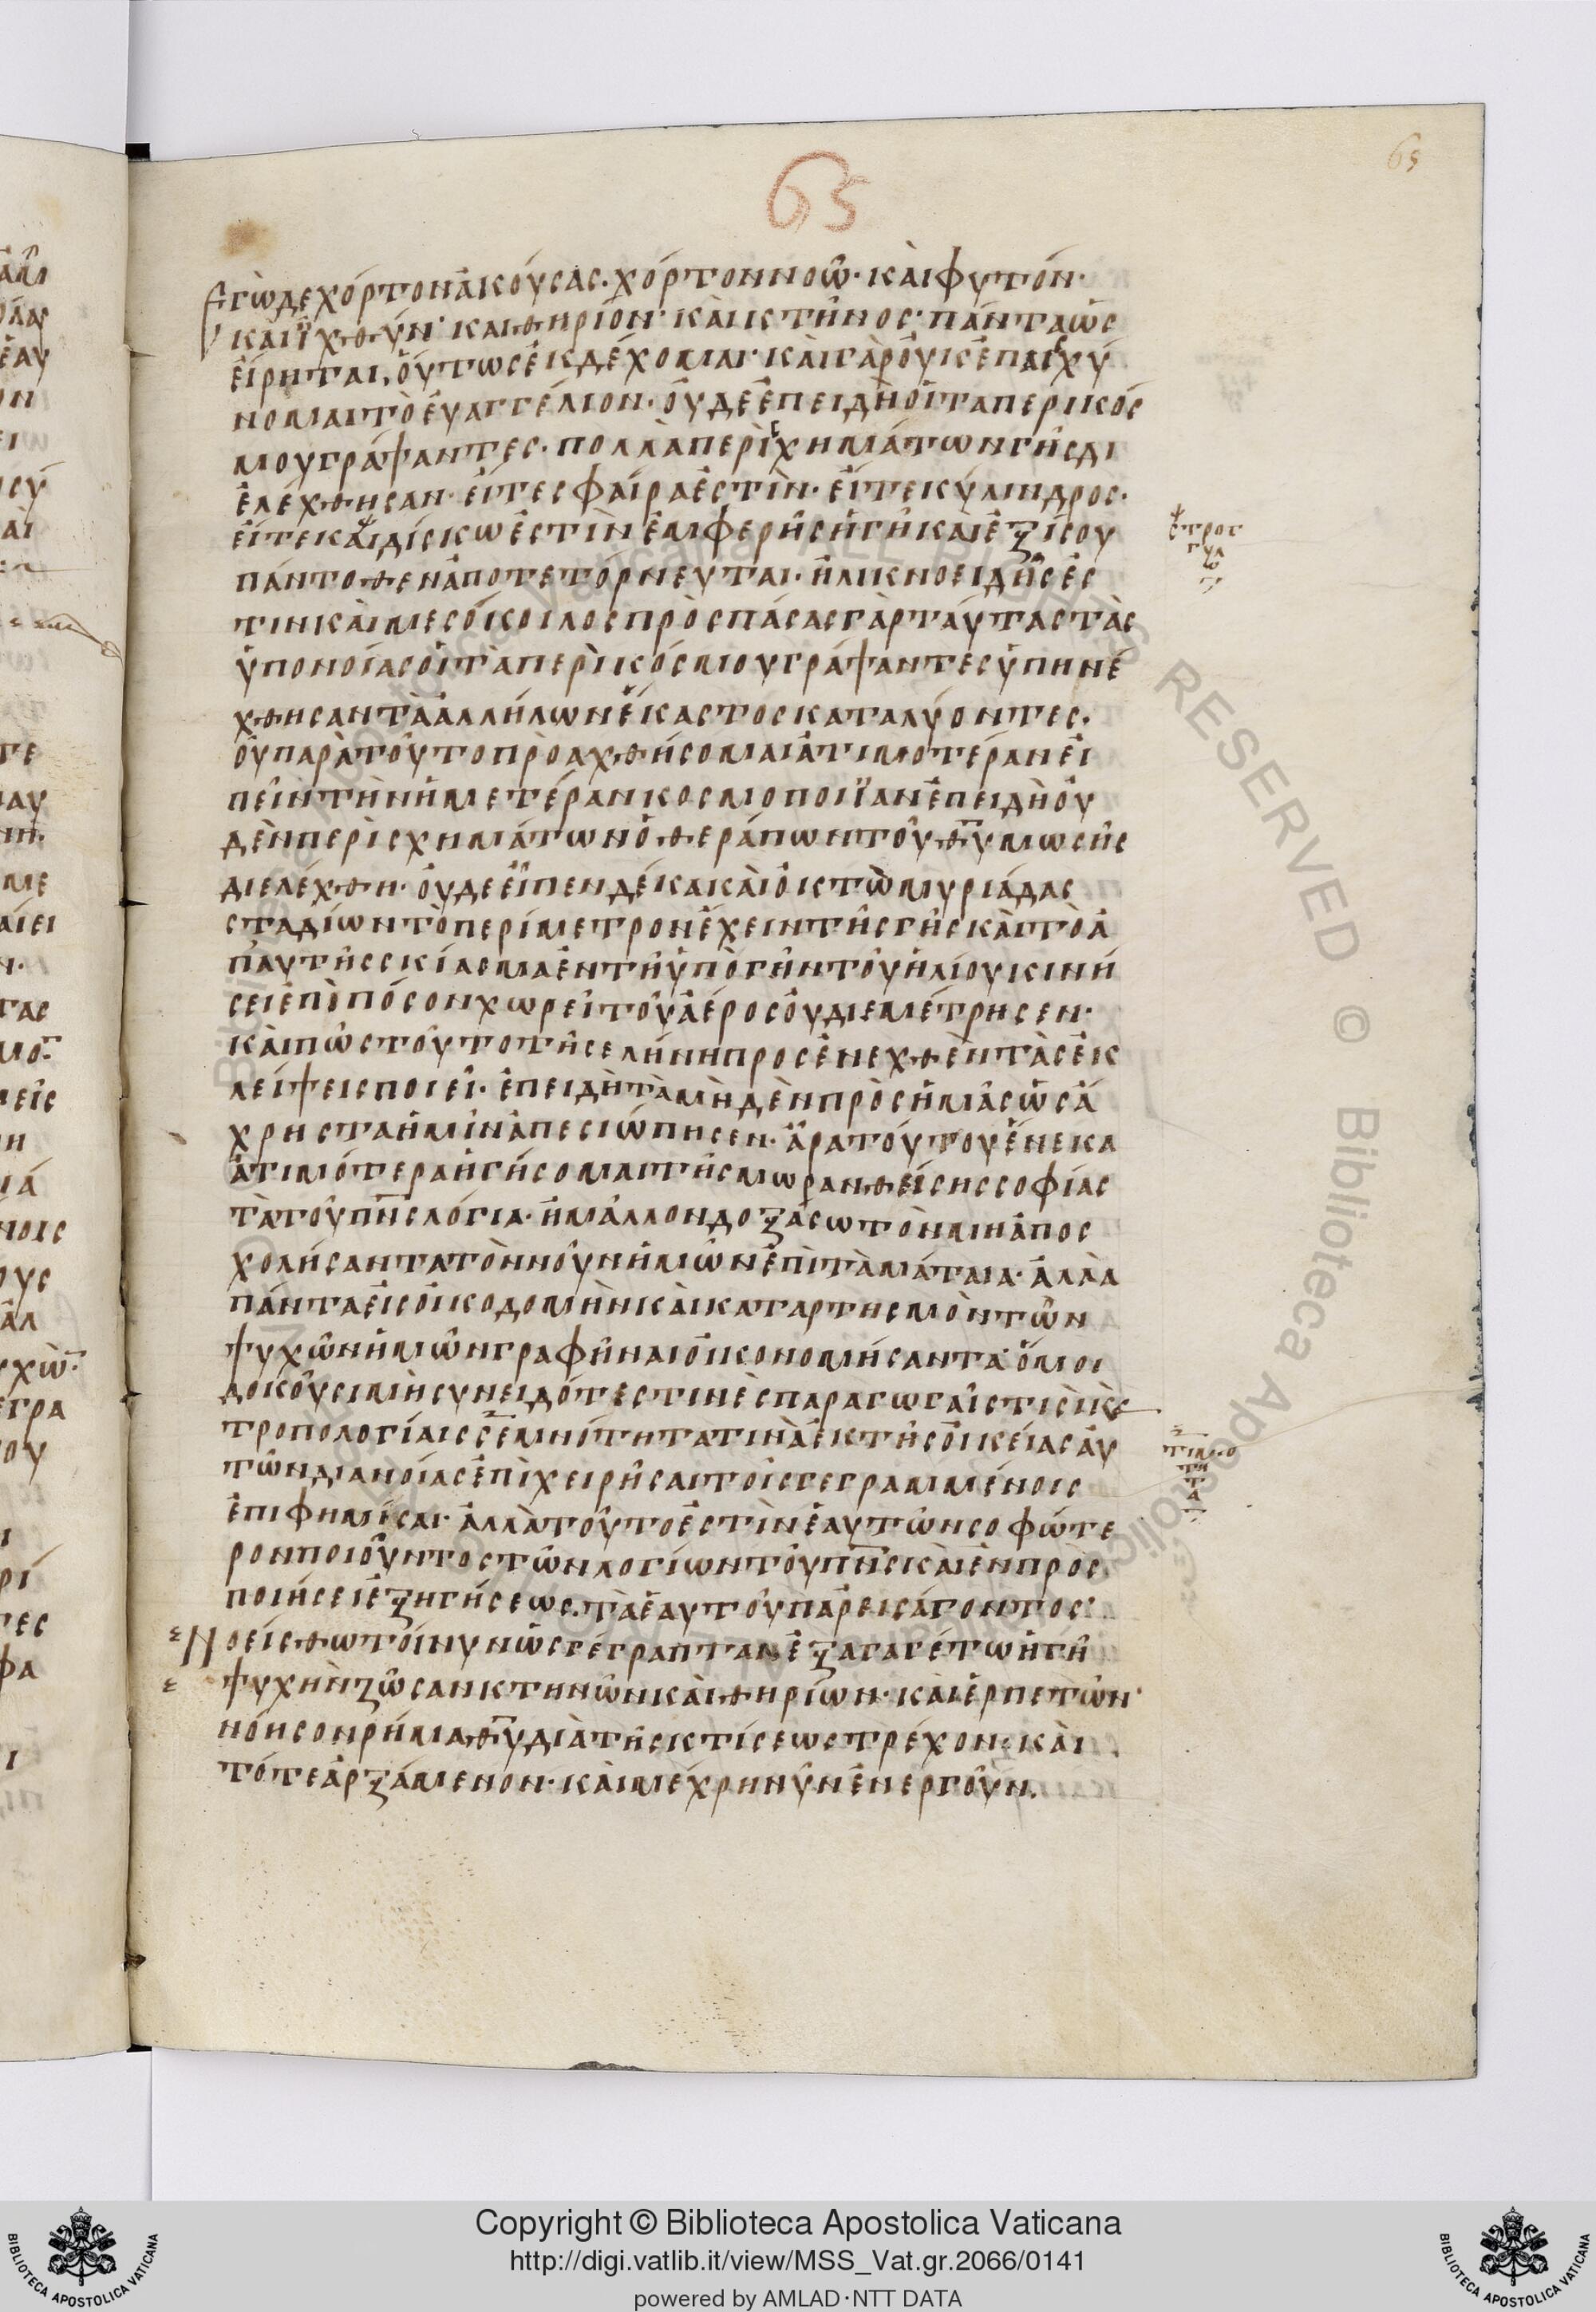 65
65
Ἐγὼ δε χόρτον ἀκούσας· χόρτον νοῶ· καὶ φυτόν·
καὶ ϊχθύν· και θηρίον· καὶ κτῆνος· πάντα ὡς
εἴρηται, οὕτως ἐκδέχομαι· καὶ γὰρ οὐκ ἐπαισχύ
νομαι τὸ εὐαγγέλιον· οὐδὲ ἐπειδὴ οἱ τα περι κόσ
μου γράψαντες· πολλὰ περὶ σχημάτων γῆς δι
ελέχθησαν· εἴτε σφαίρα ἐστὶν· εἴτε κύλινδρος·
εἴτε καὶ δίσκω ἐστὶν ἐμφερὴς ἡ γῆ καὶ ἐξίσου
πάντοθεν ἀποτετόρνευται· ἢ λικνοειδής ἐσ
τιν καὶ μεσόκοιλος πρὸς πάσας γὰρ ταύτας τὰς
ὑπονοίας οἱ τὰ περὶ κόσμου γράψαντες ὑπηνέ
χθησαν τὰ ἀλλήλων ἕκαστος καταλύοντες.
οὐ παρὰ τοῦτο προαχθήσομαι ἀτιμοτέραν εἰ
πεῖν τὴν ἡμετέραν κοσμοποιΐαν ἐπειδὴ οὐ
δὲν περὶ σχημάτων ὁ θεράπων τοῦ θ̅υ̅ μωσῆς
διελέχθη· οὐδε εἶπεν δέκα καὶ ὀκτὼ μυριάδας
σταδίων τὸ περίμετρον ἔχειν τῆς γῆς καὶ τὸ ἀ
π' αὐτῆς σκίασμα ἐν τῇ ὑπὸ γῆν τοῦ ἡλίου κινή
σει ἐπὶ πόσον χωρεῖ τοῦ ἀέρος οὐ διεμέτρησεν·
καὶ πῶς τοῦτο τῇ σελήνη προσενεχθὲν τὰς ἐκ
λείψεις ποιεῖ· ἐπειδὴ τὰ μὴδὲν πρὸς ἡμᾶς ὡς ἄ
χρηστα ἡμῖν ἀπεσιώπησεν· ἆρα τούτου ἕνεκα
ἀτιμότερα ἡγήσομαι τῆς μωρανθείσης σοφίας
τὰ τοῦ π̅ν̅ς̅ λόγια· ἢ μᾶλλον δοξάσω τὸν μη ἀπασ
χολήσαντα τὸν νοῦν ἡμῶν ἐπὶ τὰ μάταια· ἀλλὰ
πάντα εἰς οἰκοδομὴν καὶ καταρτησμὸν τῶν
ψυχῶν ἡμῶν γραφῆναι οἰκονομήσαντα· ὅ μοι
δοκοῦσι μὴ συνειδότες τινὲς παραγωγαῖς τισὶ κ(αὶ)
τροπολογίαις σεμνότητα τινὰ ἐκ τῆς οἰκείας αὐ
τῶν διανοίας ἐπιχειρῆσαι τοῖς γεγραμμένοις
ἐπιφημίσαι· ἀλλὰ τοῦτο ἐστὶν ἑαυτῶν σοφώτε
ρον ποιοῦντος τῶν λογίων τοῦ π̅ν̅ς̅ καὶ ἐν πρὸσ
ποιήσει ἐξηγήσεως. τὰ ἑαυτοῦ παρεισάγοντος·
Νοείσθω τοίνυν ὡς γέγραπται ἐξαγαγέτω ἡ γῆ
ψυχὴν ζῶσαν κτηνῶν καὶ θηρίων· καὶ ἑρπετῶν·
νόησον ρήμα θ̅υ̅ διὰ τῆς κτίσεως τρέχον· καὶ
τότε ἀρξάμενον· καὶ μέχρι νῦν ἐνεργοῦν.
στρογ
γυλ
ω
τιμιο
τη
τα
Copyright © Biblioteca Apostolica Vaticana
http://digi.vatlib.it/view/MSS_Vat.gr.2066/0141
powered by AMLAD·NTT DATA